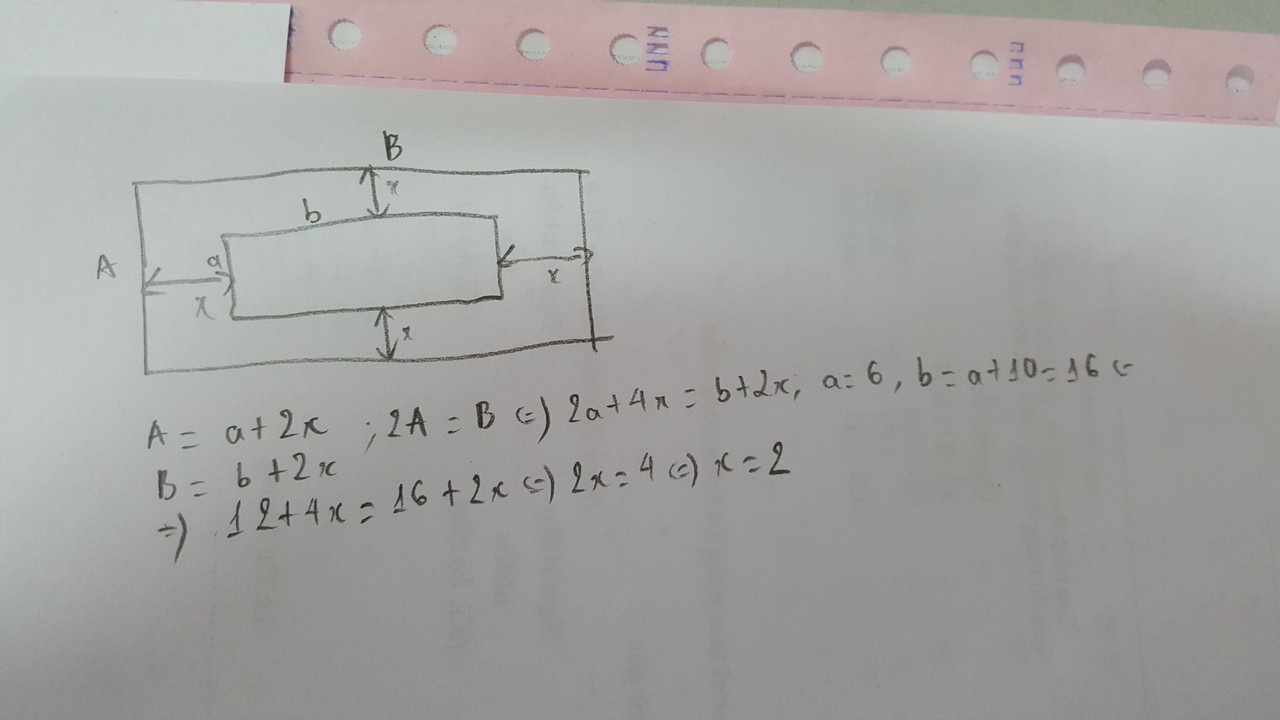 B
x
b
A
a
x
x
x
A = a+2x ; 2A = B <=> 2a+4x = b+2x, a=6, b=a+10=16 <=
B = b+2x
=> 12+4x = 16+2x <=> 2x=4 <=> x=2